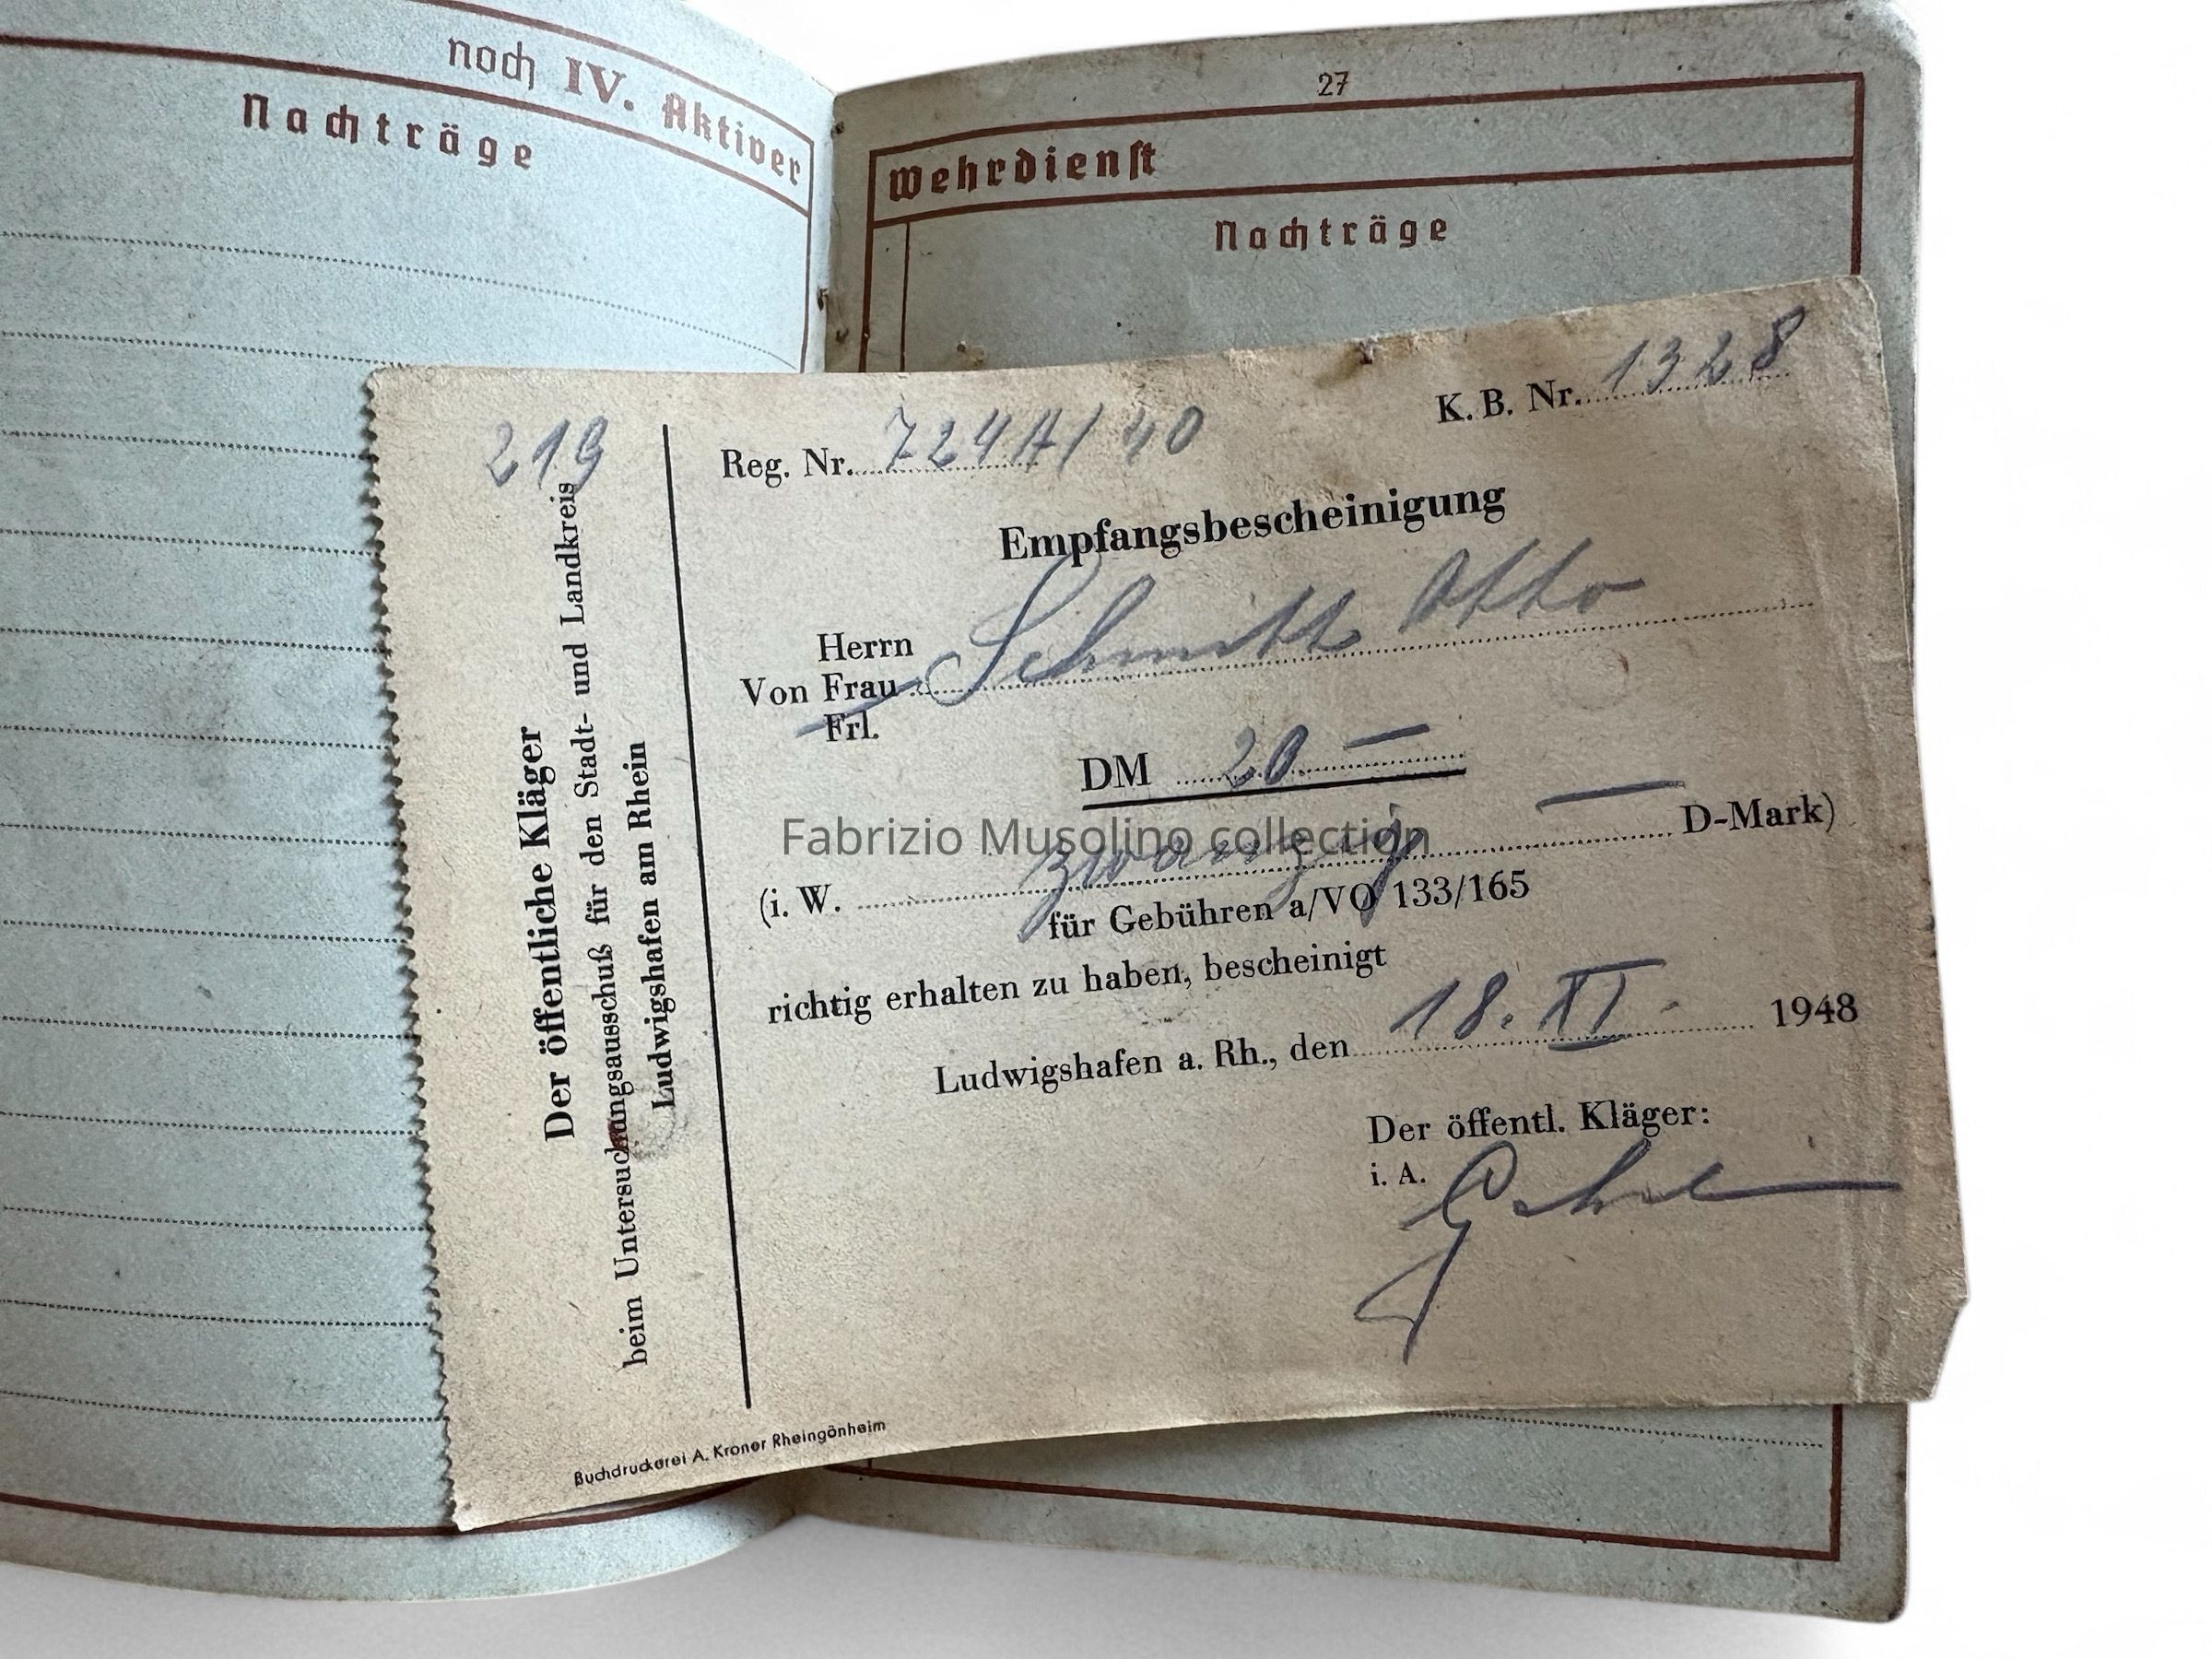 noch IV. Aktiver
Nachträge
27
Wehrdienst
Nachträge
219
Der öffentliche Kläger
beim Untersuchungsausschuß für den Stadt- und Landkreis
Ludwigshafen am Rhein
K. B. Nr. 1328
Reg. Nr. 724A/40
Empfangsbescheinigung
Herrn
Von Frau Schmitt Otto
Frl.
DM 20 —
(i. W. zwanzig — D-Mark)
Fabrizio Musolino collection
für Gebühren a/VO 133/165
richtig erhalten zu haben, bescheinigt
Ludwigshafen a. Rh., den 18. XI. 1948
Der öffentl. Kläger:
i. A.
Buchdruckerei A. Kroner Rheingönheim